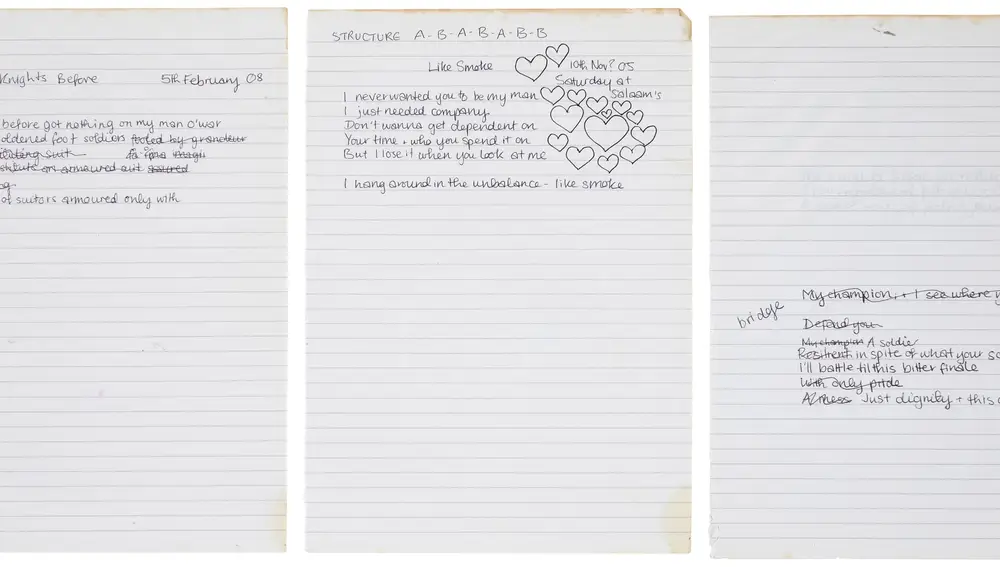 Knights Before 5th February 08
before got nothing on my man o'war
oldened foot soldiers fooled by grandeur
suit
armoured
of suitors armoured only with
STRUCTURE A-B-A-B-A-B-B
Like Smoke
10th Nov? 05
Saturday at
Salaam's
I never wanted you to be my man
I just needed company
Don't wanna get dependent on
Your time + who you spend it on
But I lose it when you look at me
I hang around in the unbalance - like smoke
My champion, + I see where
bridge
Defend you
My champion A soldier
Resilient in spite of what your
I'll battle til this bitter finale
With only pride
Just dignity + this